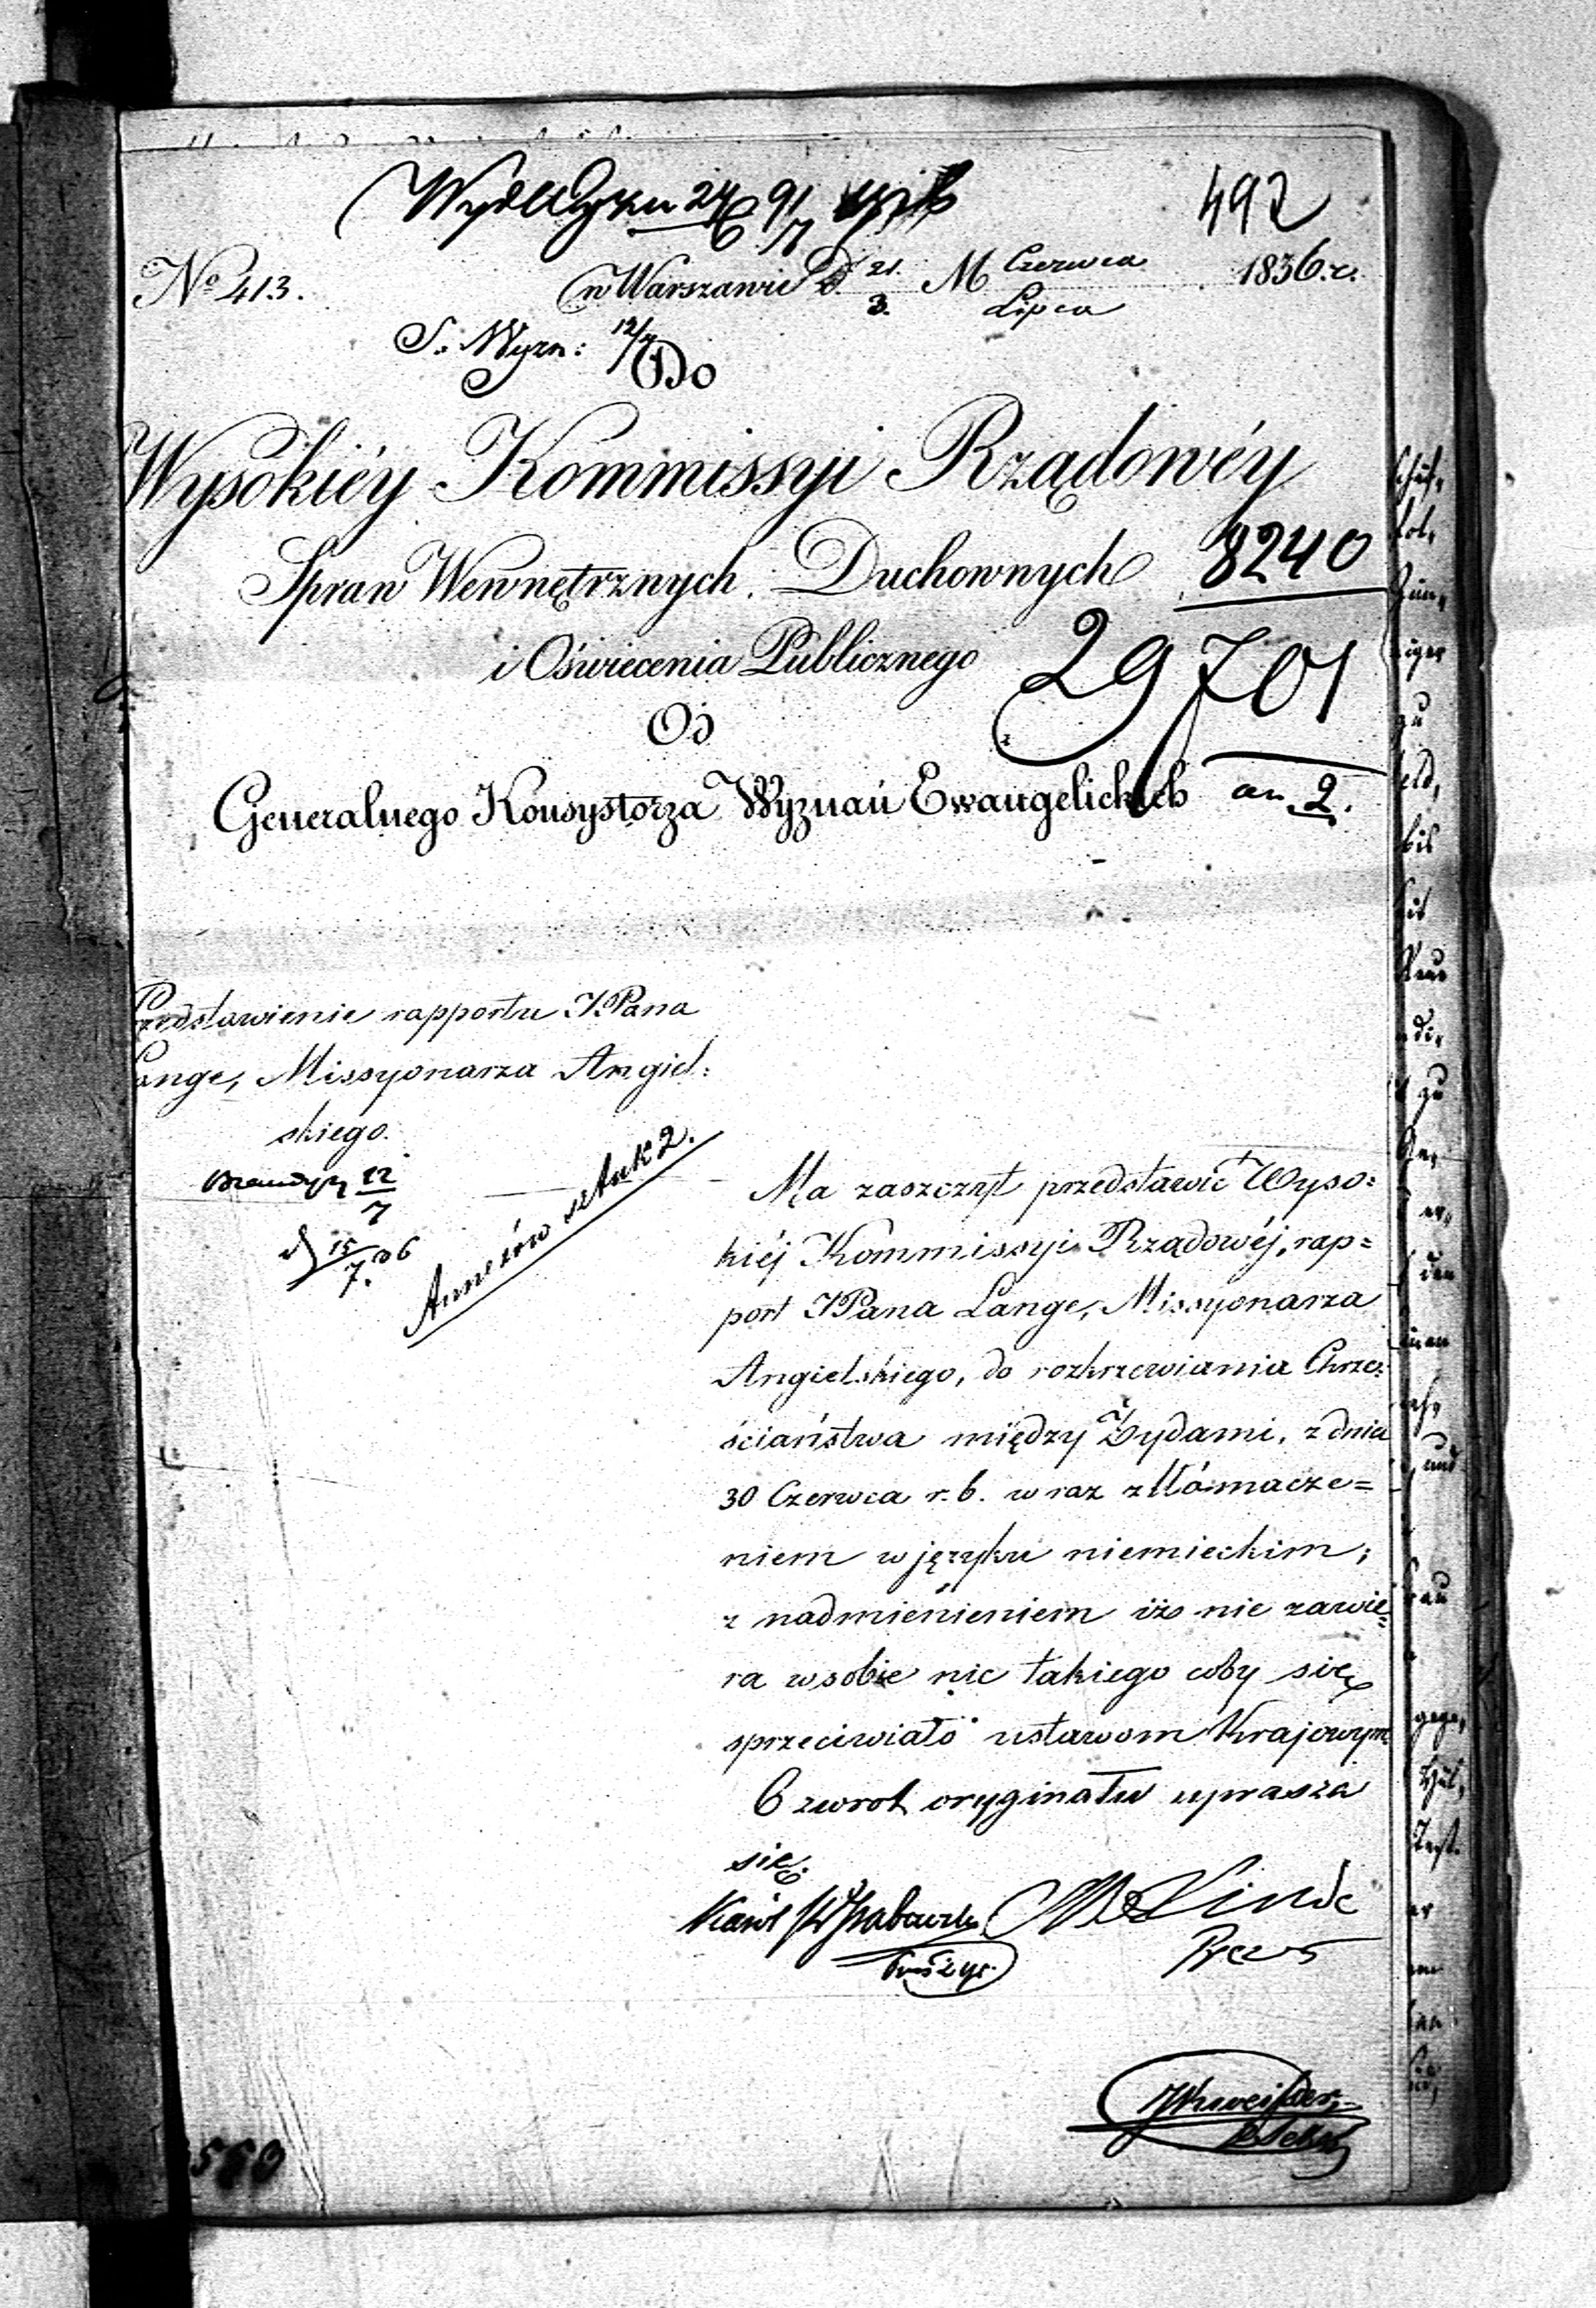 492
No 413.
w Warszawie D. 21. M Czerwca 1836. r.
3. Lipca
S. Wyzn: 12/7
Do
Wysokiéy Kommissyi Rządowéy
Spraw Wewnętrznych. Duchownych
8240
i Oświecenia Publicznego
29701
Od
Generalnego Konsystorza Wyznań Ewangelickich
an. 2.
Przedstawienie rapportu JPana
Lange, Missyonarza Angiel:
skiego.
12/7
15/7. 36
Annexów sztuk 2.
Ma zaszczyt przedstawić Wyso=
kiéj Kommissyi Rządowéj, rap=
port JPana Lange, Missyonarza
Angielskiego, do rozkrzewiania Chrze:
ściaństwa między Żydami, z dnia
30 Czerwca r. b. wraz z tłómacze=
niem w języku niemieckim;
z nadmienieniem iż nie zawie=
ra w sobie nic takiego coby się
sprzeciwiało ustawom Krajowym
O zwrot oryginału uprasza
się.
Linde
Prezes